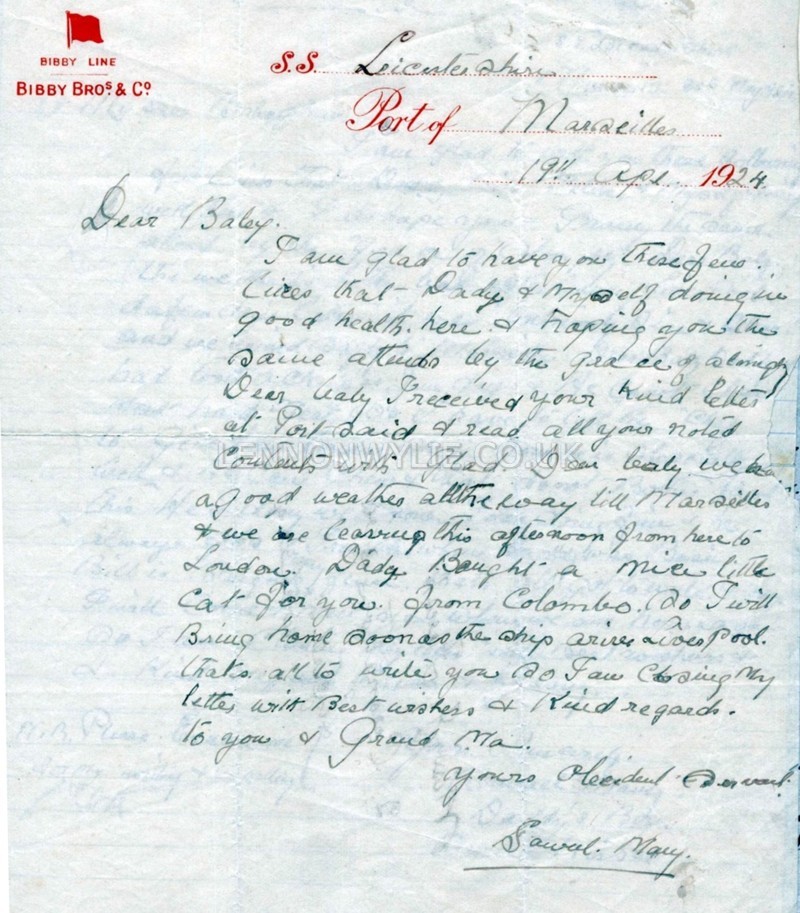 BIBBY LINE
BIBBY BROS. & CO
S.S. Leicestershire
Port of Marseilles
19th Apl. 1924
Dear Baby.
I am glad to have you these few.
lines that Dady & Myself doing in
good health. here & hoping you the
same attends by the grace of almighty
Dear baby I received your kind letter
at Port said & read all your noted
Contents with glad. Dear baby we
a good weather all the way till Marseilles
& we are leaving this afternoon from here to
London. Dady Bought a nice little
Cat for you. from Colombo. So I will
Bring home soon as the ship arives Liverpool.
thats all to write you So I am Closing My
letter with Best wishes & Kind regards.
to you & Grand Ma.
yours Obecident Servant.
LENNONWYLIE.CO.UK